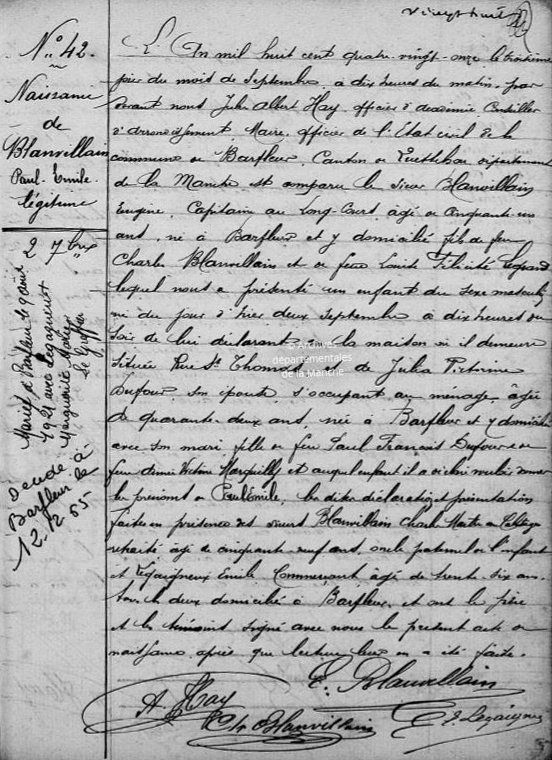 vingt huit
N° 42.
Naissance
de
Blanvillain
Paul-Emile
légitime
2 7bre
Marié à Barfleur le
1921 avec Legagneux
Marguerite
Décédé à
Barfleur le
12.12.55
L'an mil huit cent quatre-vingt-onze le troisième
jour du mois de Septembre à dix heures du matin, par
devant nous Jules Albert Hay, officier d'académie Conseiller
d'arrondissement Maire, officier de l'Etat civil de la
commune de Barfleur, Canton de Quettehou département
de la Manche est comparu le sieur Blanvillain
Eugène, Capitaine au Long-Cours âgé de cinquante un
ans, né à Barfleur et y domicilié fils de feu
Charles Blanvillain et de feue Louise Félicité Legrand
lequel nous a présenté un enfant du sexe masculin
né du jour d'hier deux Septembre à dix heures du
soir de lui déclarant en la maison où il demeure
située Rue St Thomas et de Julia Victorine
Dufour, son épouse, s'occupant au ménage, âgée
de quarante-deux ans, née à Barfleur et y domiciliée
avec son mari fille de feu Paul François Dufour et de
feue Victoire et auquel enfant il a déclaré vouloir donner
les prénoms de Paul Emile, les dites déclaration et présentation
faites en présence des sieurs Blanvillain Charles
retraité âgé de cinquante neuf ans, oncle paternel de l'enfant
et Legagneux Emile Commerçant, âgé de trente-six ans
tous les deux domiciliés à Barfleur, et ont le père
et les témoins signé avec nous le présent acte de
naissance après que lecture leur en a été faite.
E. Blanvillain
A. Hay
Ch Blanvillain
E. Legagneux
© Archives
départementales
de la Manche